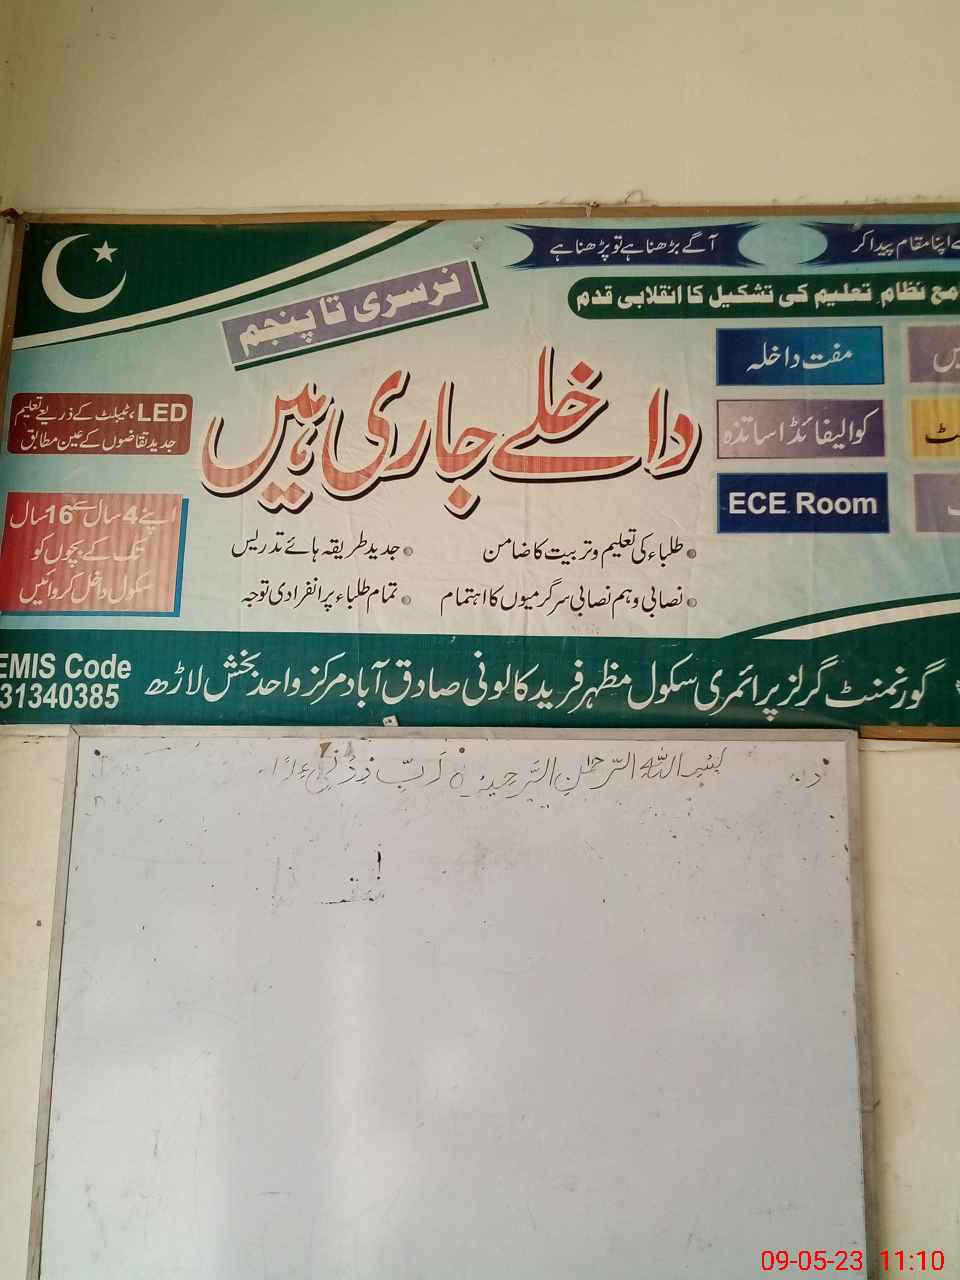 آگے بڑھنا ہے تو پڑھنا ہے
اپنا مقام پیدا کر
نظام تعلیم کی تشکیل کا انقلابی قدم
نرسری تا پنجم
داخلے جاری ہیں
مفت داخلہ
کوالیفائڈ اساتذہ
ECE Room
LED، ٹیبلٹ کے ذریعے تعلیم
جدید تقاضوں کے عین مطابق
اپنے 4 سال سے 16 سال
تک کے بچوں کو
سکول داخل کروائیں
طلباء کی تعلیم و تربیت کا ضامن
جدید طریقہ ہائے تدریس
نصابی و ہم نصابی سرگرمیوں کا اہتمام
تمام طلباء پر انفرادی توجہ
گورنمنٹ گرلز پرائمری سکول مظہر فرید کالونی صادق آباد مرکز واحد بخش لاڑھ
EMIS Code
31340385
بسم اللہ الرحمن الرحیم رب زدنی علما
09-05-23 11:10